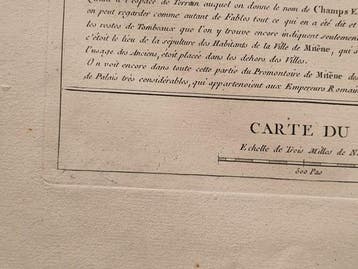 l'espace de Terrain auquel on donne le nom de Champs E
on peut regarder comme autant de Fables tout ce qui en a été dit et
les restes de Tombeaux que l'on y trouve encore indiquent seulement
c'étoit le lieu de la sépulture des Habitants de la Ville de Misène, qui s
l'usage des Anciens, étoit placé dans les dehors des Villes.
On voit encore dans toute cette partie du Promontoire de Misène des
de Palais très considérables, qui appartenoient aux Empereurs Romain
CARTE DU
Echelle de Trois Milles de N
500 Pas